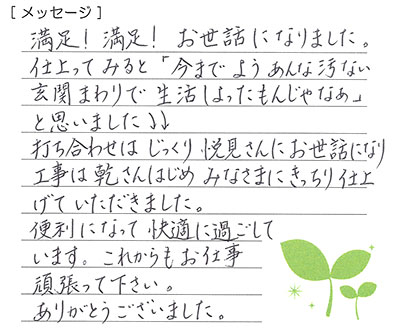 [メッセージ]
満足！満足！ お世話になりました。
仕上ってみると「今まで よう あんな 汚ない
玄関まわりで 生活しよったもんじゃなあ」
と思いました♪♪
打ち合わせは じっくり 悦見さんにお世話になり
工事は 乾さんはじめ みなさまに きっちり 仕上
げていただきました。
便利になって 快適に過ごして
います。これからも お仕事
頑張って下さい。
ありがとうございました。